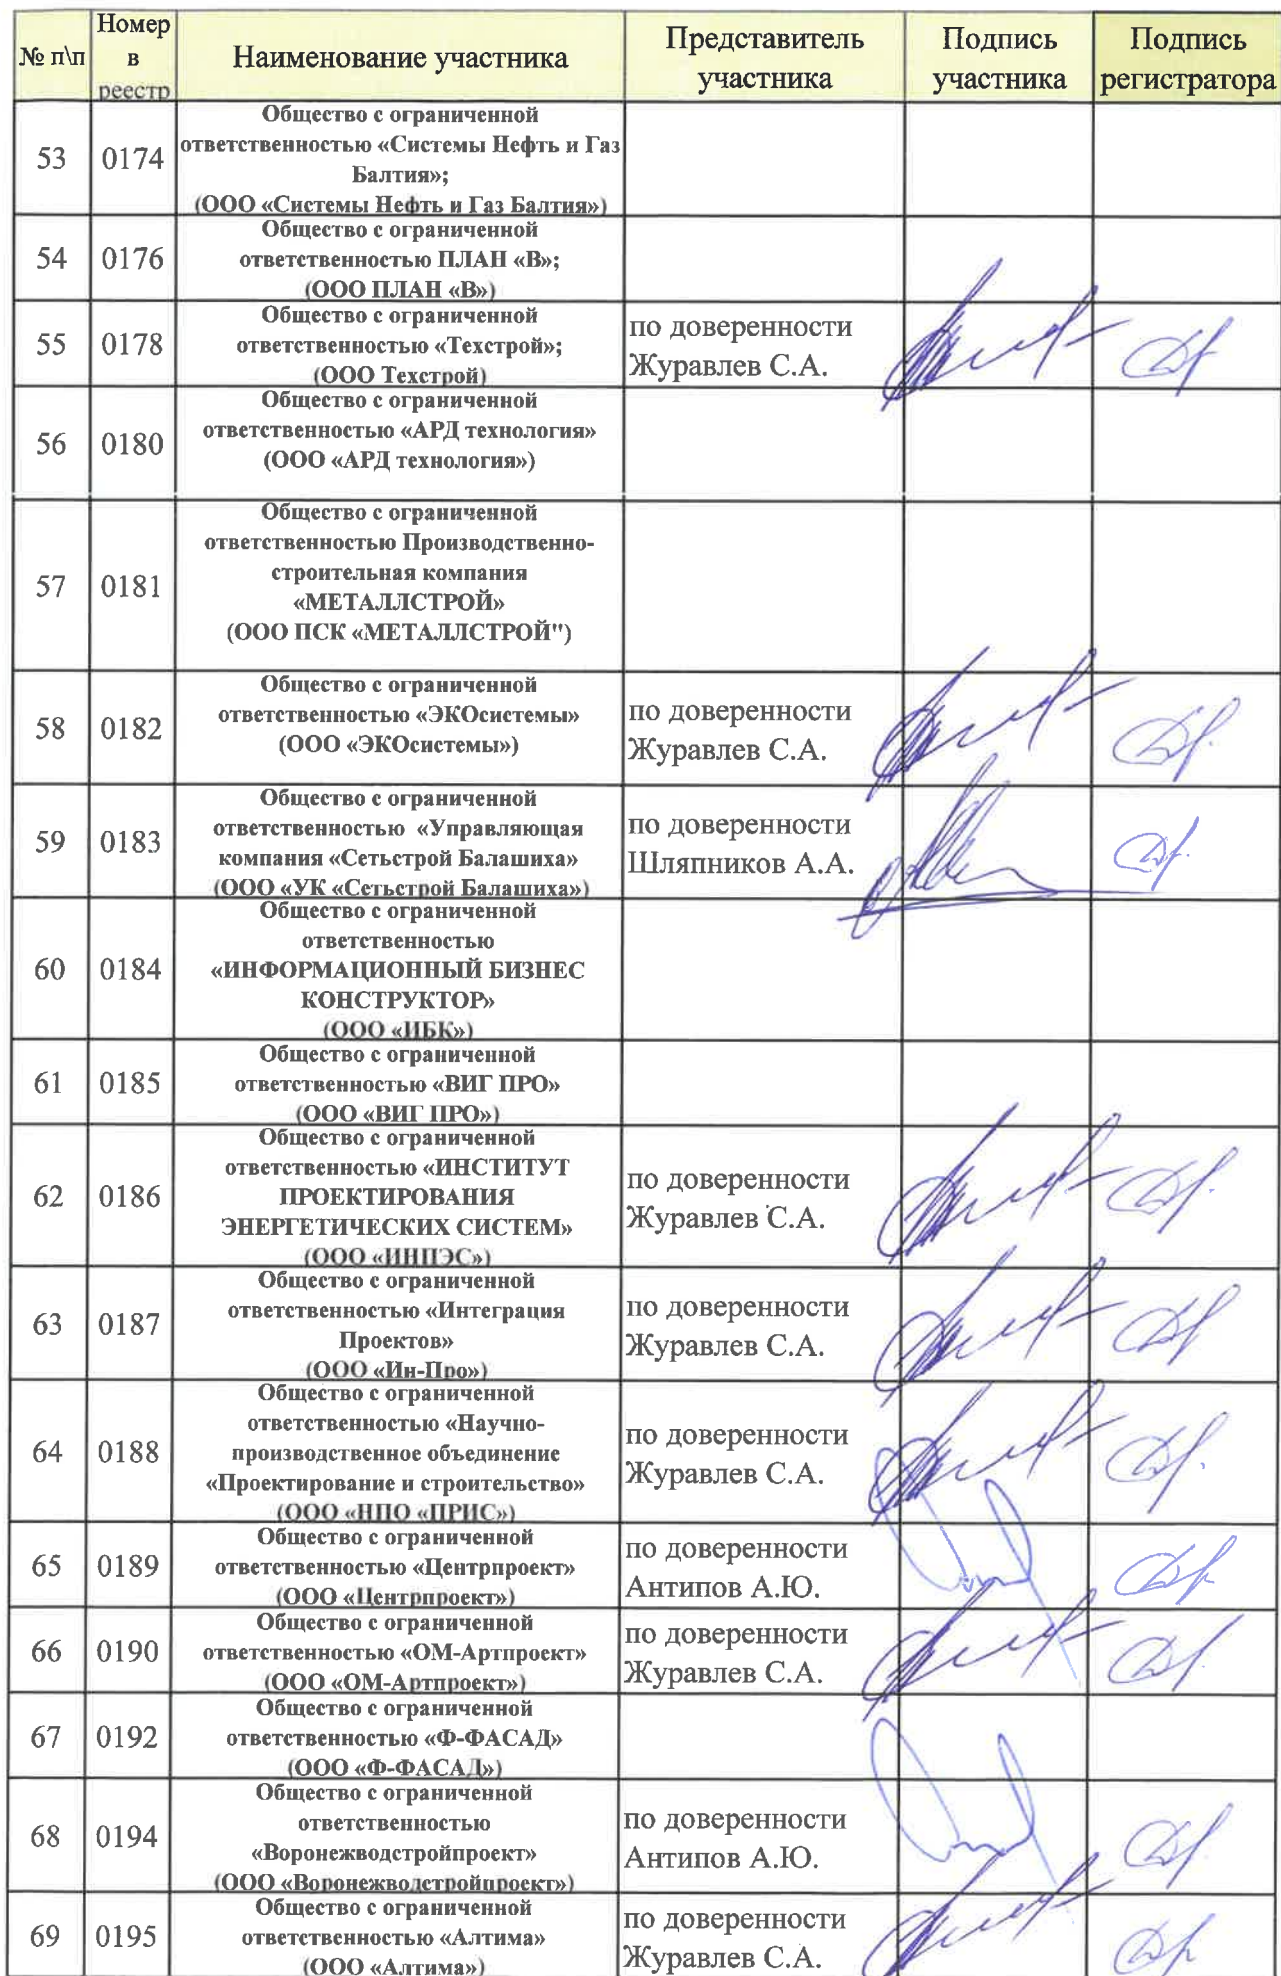 № п\п
Номер
в
реестр
Наименование участника
Представитель
участника
Подпись
участника
Подпись
регистратора
53
0174
Общество с ограниченной
ответственностью «Системы Нефть и Газ
Балтия»;
(ООО «Системы Нефть и Газ Балтия»)
54
0176
Общество с ограниченной
ответственностью ПЛАН «В»;
(ООО ПЛАН «В»)
55
0178
Общество с ограниченной
ответственностью «Техстрой»;
(ООО Техстрой)
по доверенности
Журавлев С.А.
56
0180
Общество с ограниченной
ответственностью «АРД технология»
(ООО «АРД технология»)
57
0181
Общество с ограниченной
ответственностью Производственно-
строительная компания
«МЕТАЛЛСТРОЙ»
(ООО ПСК «МЕТАЛЛСТРОЙ")
58
0182
Общество с ограниченной
ответственностью «ЭКОсистемы»
(ООО «ЭКОсистемы»)
по доверенности
Журавлев С.А.
59
0183
Общество с ограниченной
ответственностью «Управляющая
компания «Сетьстрой Балашиха»
(ООО «УК «Сетьстрой Балашиха»)
по доверенности
Шляпников А.А.
60
0184
Общество с ограниченной
ответственностью
«ИНФОРМАЦИОННЫЙ БИЗНЕС
КОНСТРУКТОР»
(ООО «ИБК»)
61
0185
Общество с ограниченной
ответственностью «ВИГ ПРО»
(ООО «ВИГ ПРО»)
62
0186
Общество с ограниченной
ответственностью «ИНСТИТУТ
ПРОЕКТИРОВАНИЯ
ЭНЕРГЕТИЧЕСКИХ СИСТЕМ»
(ООО «ИНПЭС»)
по доверенности
Журавлев С.А.
63
0187
Общество с ограниченной
ответственностью «Интеграция
Проектов»
(ООО «Ин-Про»)
по доверенности
Журавлев С.А.
64
0188
Общество с ограниченной
ответственностью «Научно-
производственное объединение
«Проектирование и строительство»
(ООО «НПО «ПРИС»)
по доверенности
Журавлев С.А.
65
0189
Общество с ограниченной
ответственностью «Центрпроект»
(ООО «Центрпроект»)
по доверенности
Антипов А.Ю.
66
0190
Общество с ограниченной
ответственностью «ОМ-Артпроект»
(ООО «ОМ-Артпроект»)
по доверенности
Журавлев С.А.
67
0192
Общество с ограниченной
ответственностью «Ф-ФАСАД»
(ООО «Ф-ФАСАД»)
68
0194
Общество с ограниченной
ответственностью
«Воронежводстройпроект»
(ООО «Воронежводстройпроект»)
по доверенности
Антипов А.Ю.
69
0195
Общество с ограниченной
ответственностью «Алтима»
(ООО «Алтима»)
по доверенности
Журавлев С.А.